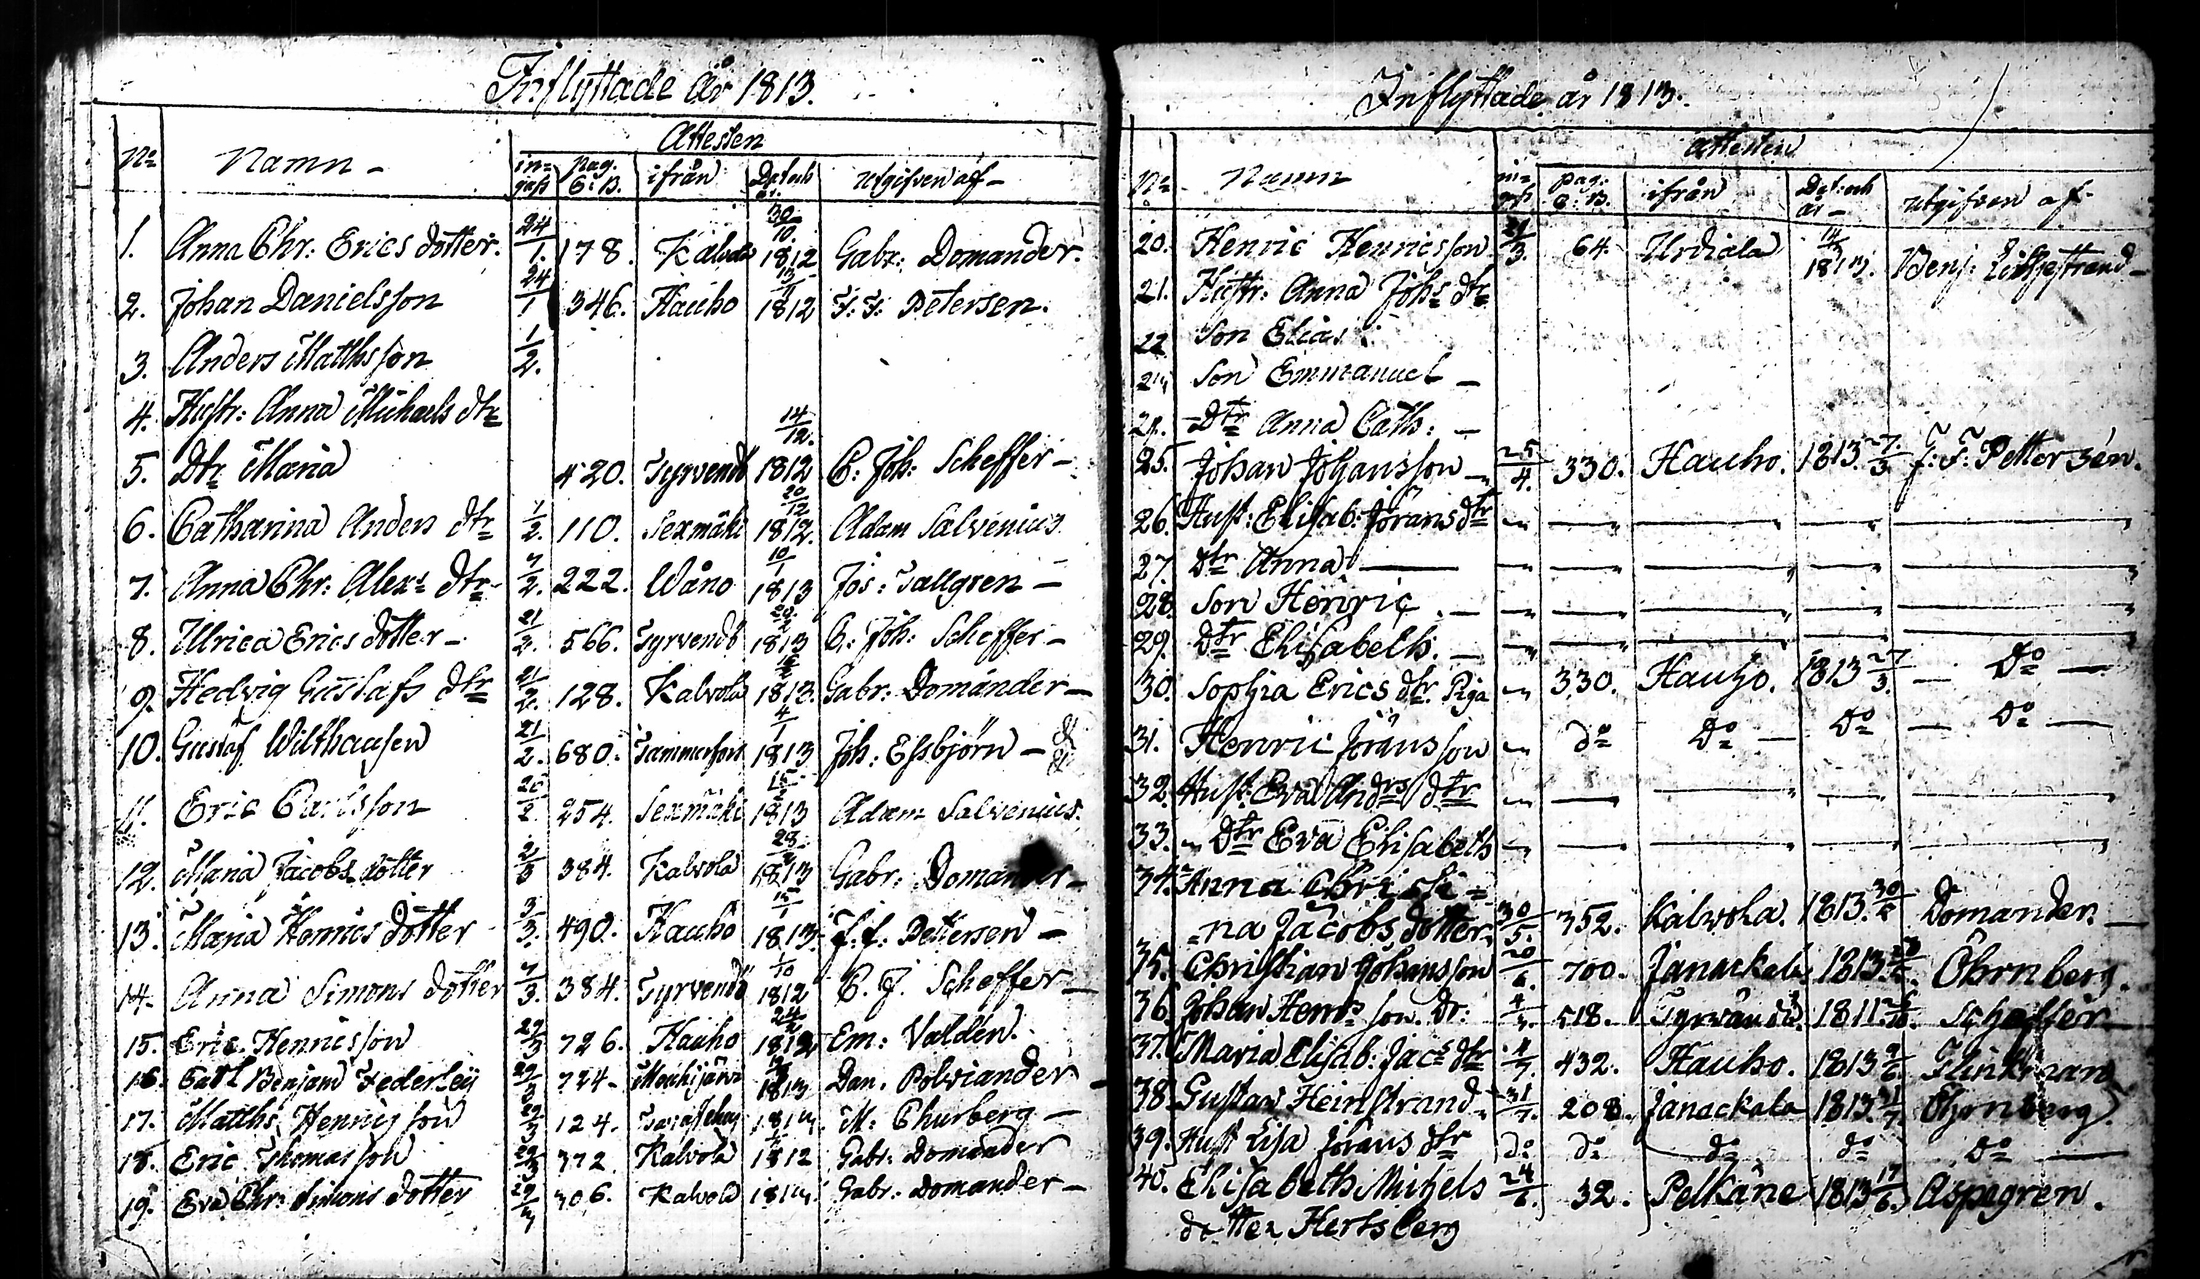 Inflyttade År 1813.
Attesten
No Namn - in- Pag. ifrån Dat och utgifven af -
gafs C:B. år
1. Anna Chr: Erics dotter. 24/1. 178. Kalvola 30/10 1812 Gabr: Domander.
2. Johan Danielsson 24/1 346. Hauho 1812 F: F: Petersen.
3. Anders Matthsson 1/2.
4. Hustr: Anna Michaels dtr
5. Dtr Maria 420. Tyrvendö 14/12. 1812 C: Joh: Scheffer -
6. Catharina Anders dtr 1/2. 110. Sexmäki 20/12 1812. Adam Salvenius.
7. Anna Chr: Alexs dtr - 7/2. 222. Wåno 10/1 1813 Jos: Tallgren -
8. Ulrica Erics dotter - 21/2. 566. Tyrvendö 1813 C: Joh: Scheffer -
9. Hedvig Gustafs dtr 21/2. 128. Kalvola 1813. Gabr: Domander -
10. Gustaf Wilthausen 21/2. 680. Tammerfors 4/1 1813 Joh: Essbjörn -
11. Eric Carlsson 254. Sexmäki 1813 Adam Salvenius.
12. Maria Jacobs dotter 384. Kalvola 1813 Gabr: Domander -
13. Maria Henrics dotter 3/3. 490. Hauho 1813. F. F. Pettersen -
14. Anna Simons dotter 7/3. 384. Tyrvendö 1/10 1812 C. J. Scheffer -
15. Eric Henricsson 29/3 726. Hauho 1812 Em: Valdén.
16. Carl Benjamd Federley 29/3 724. Dan. Polviander
17. Matths Henricsson 29/3 124. 1813 M: Churberg -
18. Eric Thomasson 29/3 372. Kalvola 1812 Gabr: Domander
19. Eva Chr: Simons dotter 29/3 306. Kalvola 1813. Gabr: Domander -
Inflyttade år 1813.
Attesten
No Namn in- Pag: ifrån Dat: och utgifven af -
gafs C: B. år -
20. Henric Henricsson 29/3. 64. Urdiala 1813. Benj: Liljestrand -
21. Hustr: Anna Johs dtr
22 Son Elias :
23 Son Emmanuel -
24. - Dtr Anna Cath: -
25. Johan Johansson - 25/4. 330. Hauho. 1813 27/3 F: F: Pettersén.
26. Hust: Elisab: Jörans dtr
27 Dtr Anna
28 Son Henric -
29. dtr Elisabeth. -
30. Sophia Erics dtr. Piga 330. Hauho. 1813 27/3. - Do -
31. Henric Jöransson do Do - Do - Do -
32. Hust: Eva Andrs dtr
33. Dtr Eva Elisabeth
34. Anna Christi=
=na Jacobs dotter. 30/5. 352. Kalvola. 1813. Domander. -
35. Christian Johansson 20/6. 700. Janackala 1813. Öhrnberg.
36. Johan Henrs son. Dr: 518. Tyrvändö. 1811 Scheffer
37. Maria Elisab: Jacs dtr 4/7. 432. Hauho. 1813 Flinkman
38. Gustav Heinstrand. 31/7. 208. Janackala 1813. Öhrnberg.
39. Hust Lisa Jörans dtr do do do do do -
40. Elisabeth Michels 24/6. 32. Pelkäne 1813 17/6. Aspegren.
dotter Hertsberg